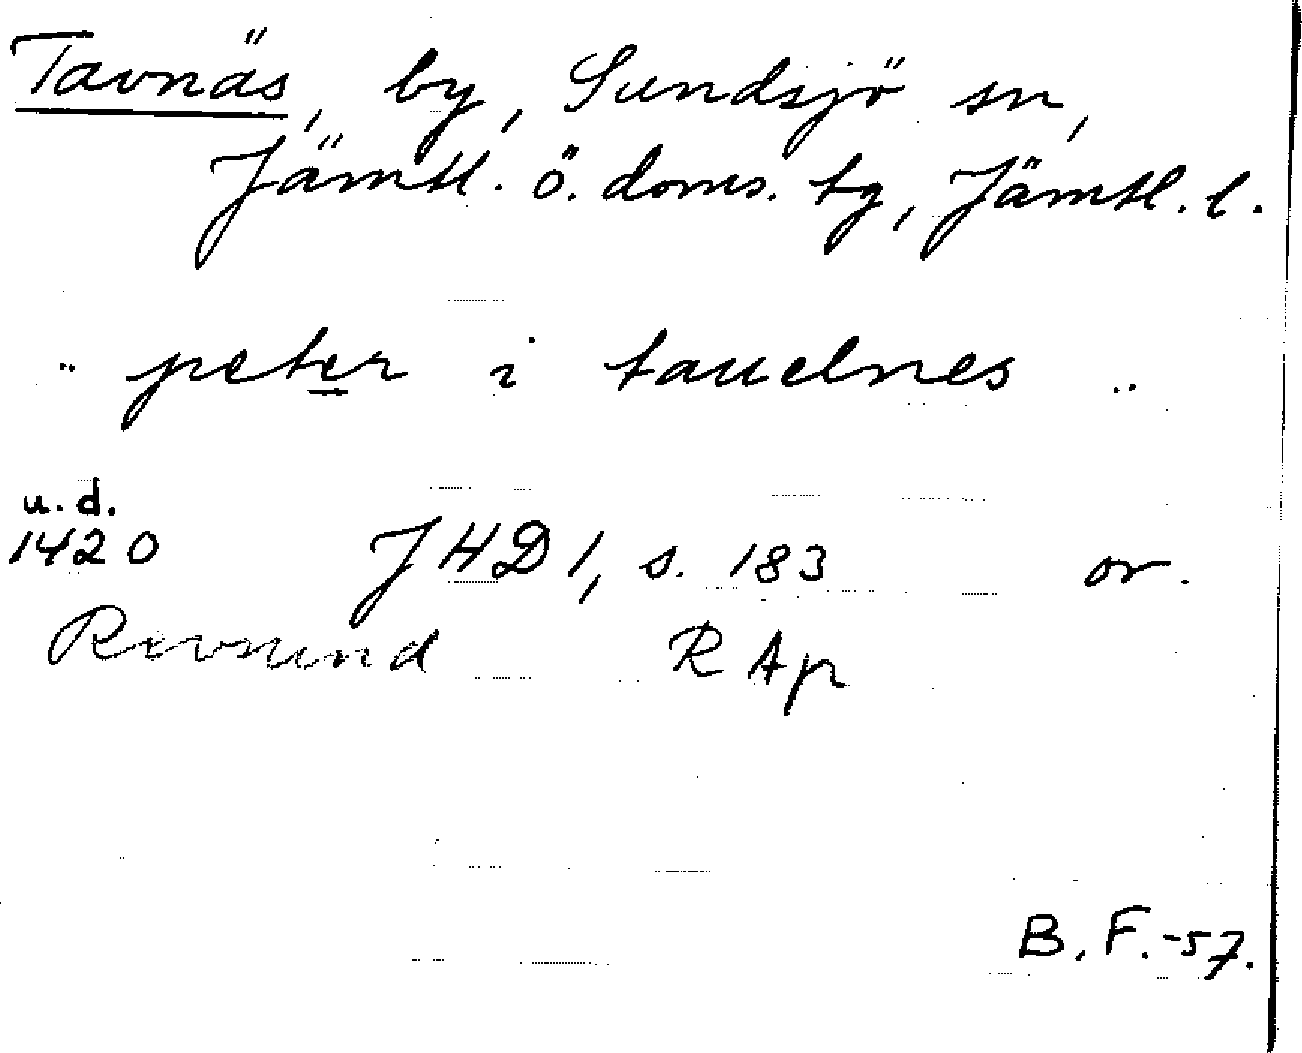 Tavnäs, by, Sundsjö sn,
Jämtl. ö. doms. tg, Jämtl. l.
.. peter i tauelnes ..
u.d.
1420 JHD 1, s. 183 or.
Revsund RAp
B.F.-57.